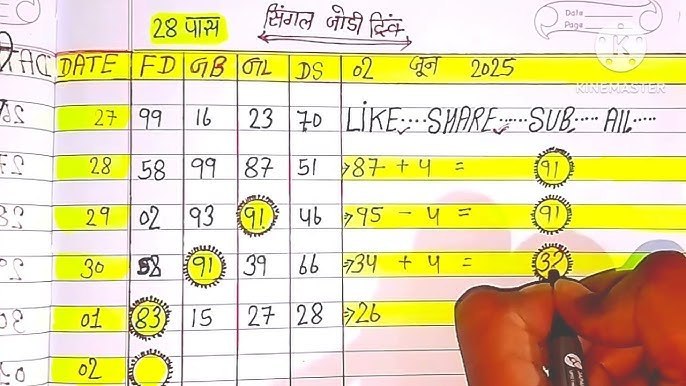 28 पास सिंगल जोडी ट्रिक Date: Page:
DATE FD GB GL DS 02 जून 2025
KINEMASTER
27 99 16 23 70 LIKE.... SHARE..... SUB.... All.....
28 58 99 87 51 →87 + 4 = 91
29 02 93 91 46 →95 - 4 = 91
30 58 91 39 66 →34 + 4 = 32
01 83 15 27 28 →26
02